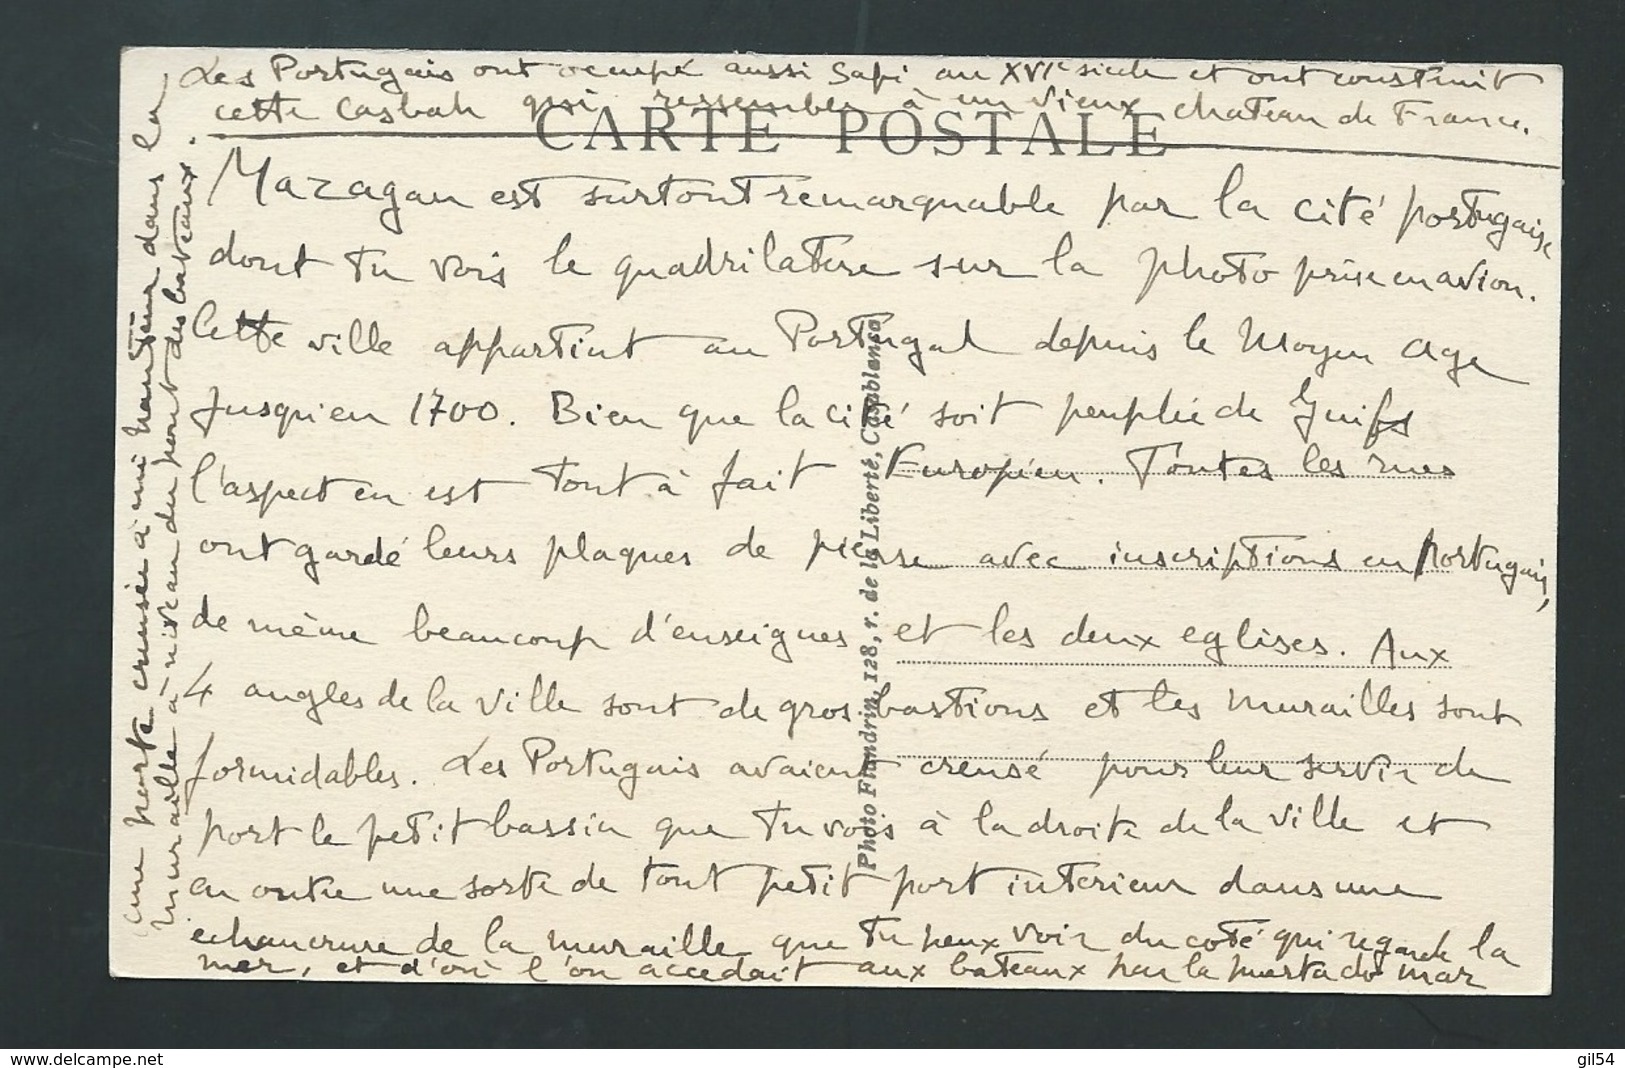 Les Portugais ont occupé aussi Safi au XVIe siècle et ont construit
cette Casbah qui ressemble à un vieux chateau de France.
CARTE POSTALE
Mazagan est surtout remarquable par la cité portugaise
dont tu vois le quadrilatère sur la photo prise en avion.
Cette ville appartint au Portugal depuis le Moyen Age
jusqu'en 1700. Bien que la cité soit peuplée de Juifs
l'aspect en est tout à fait Européen. Toutes les rues
ont gardé leurs plaques de pierre avec inscriptions en Portugais,
de même beaucoup d'enseignes et les deux eglises. Aux
4 angles de la ville sont de gros bastions et les murailles sont
formidables. Les Portugais avaient creusé pour leur servir de
port le petit bassin que tu vois à la droite de la ville et
en outre une sorte de tout petit port interieur dans une
echancrure de la muraille que tu peux voir du coté qui regarde la
mer, et d'où l'on accedait aux bateaux par la puerta do mar
une porte creusée à mi hauteur dans la
muraille à niveau du pont des bateaux.
Photo Flandrin, 128, r. de la Liberté, Casablanca
www.delcampe.net
gil54